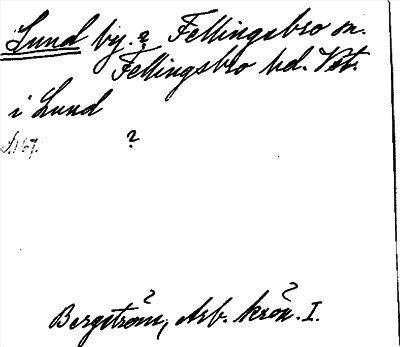 Lund by. ? Fellingsbro sn.
Fellingsbro hd. Vstm.
i Lund
?
Bergström, Arb. krön. I.